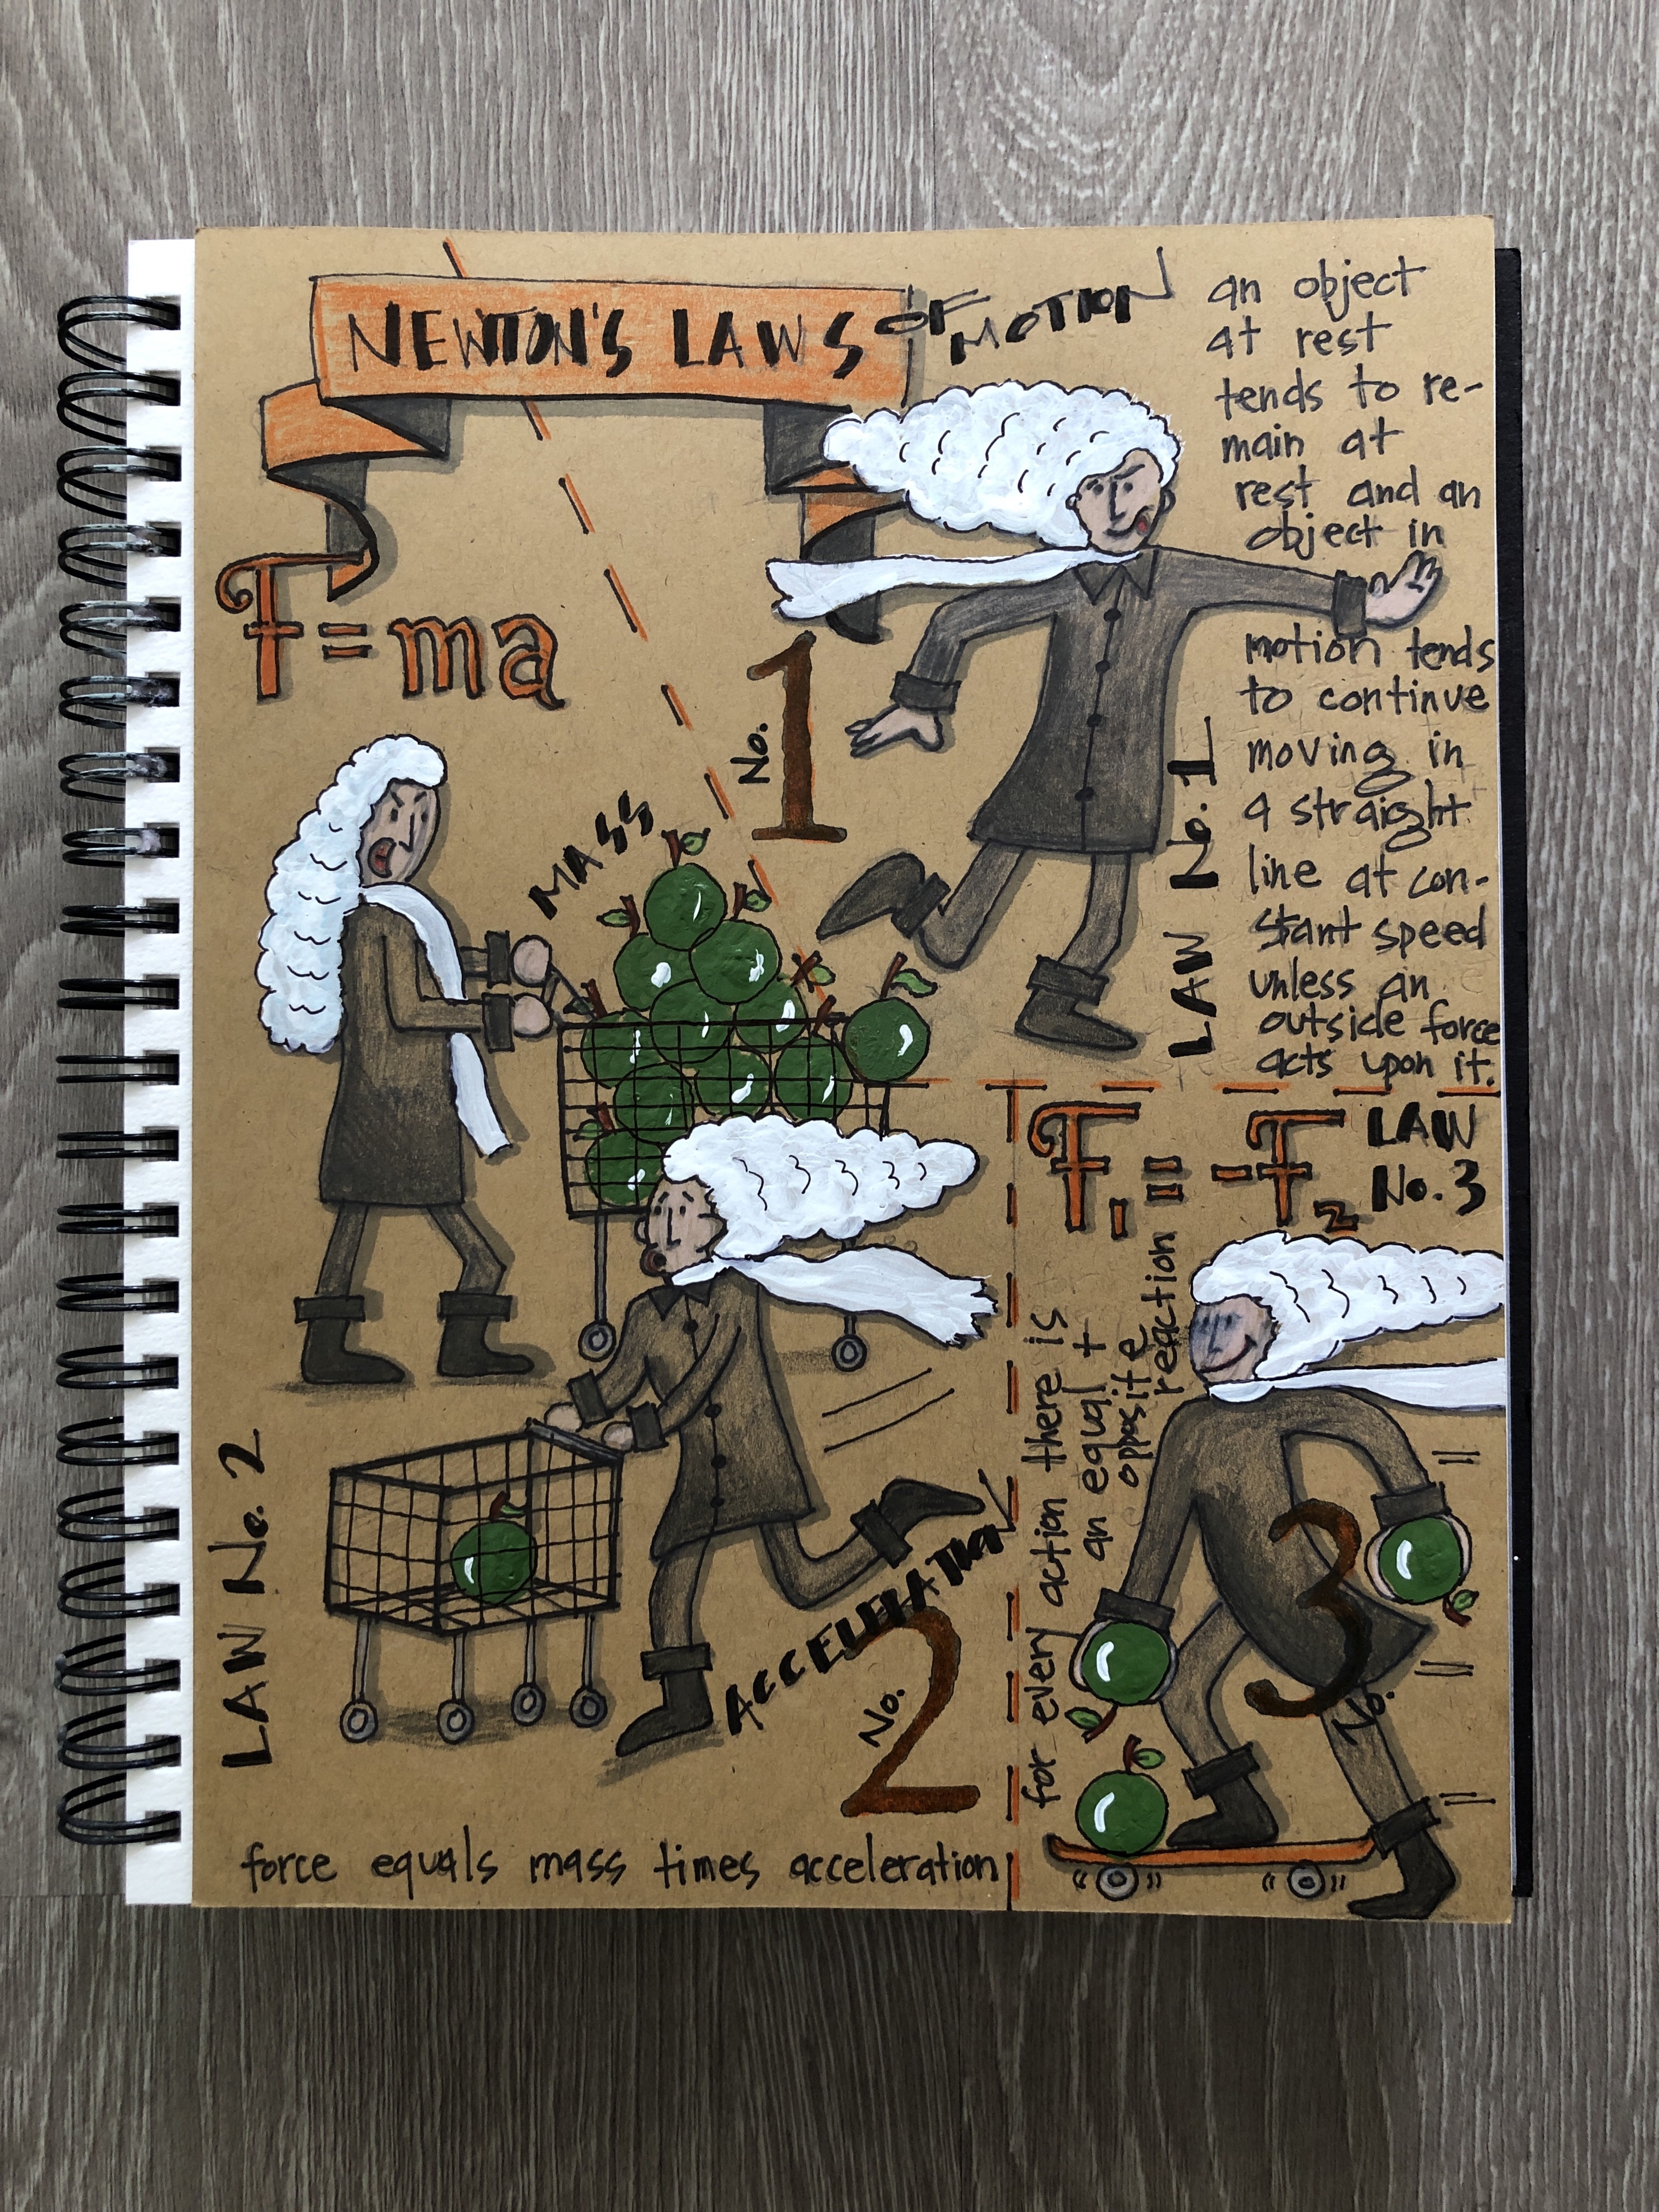 NEWTON'S LAWS OF MOTION
an object
at rest
tends to re-
main at
rest and an
object in
motion tends
to continue
moving in
a straight
line at con-
stant speed
unless an
outside force
acts upon it.
LAW No. 1
No. 1
F=ma
MASS
ACCELERATION
No. 2
LAW No. 2
force equals mass times acceleration
F1 = -F2
LAW
No. 3
for every action there is
an equal +
opposite
reaction
No. 3